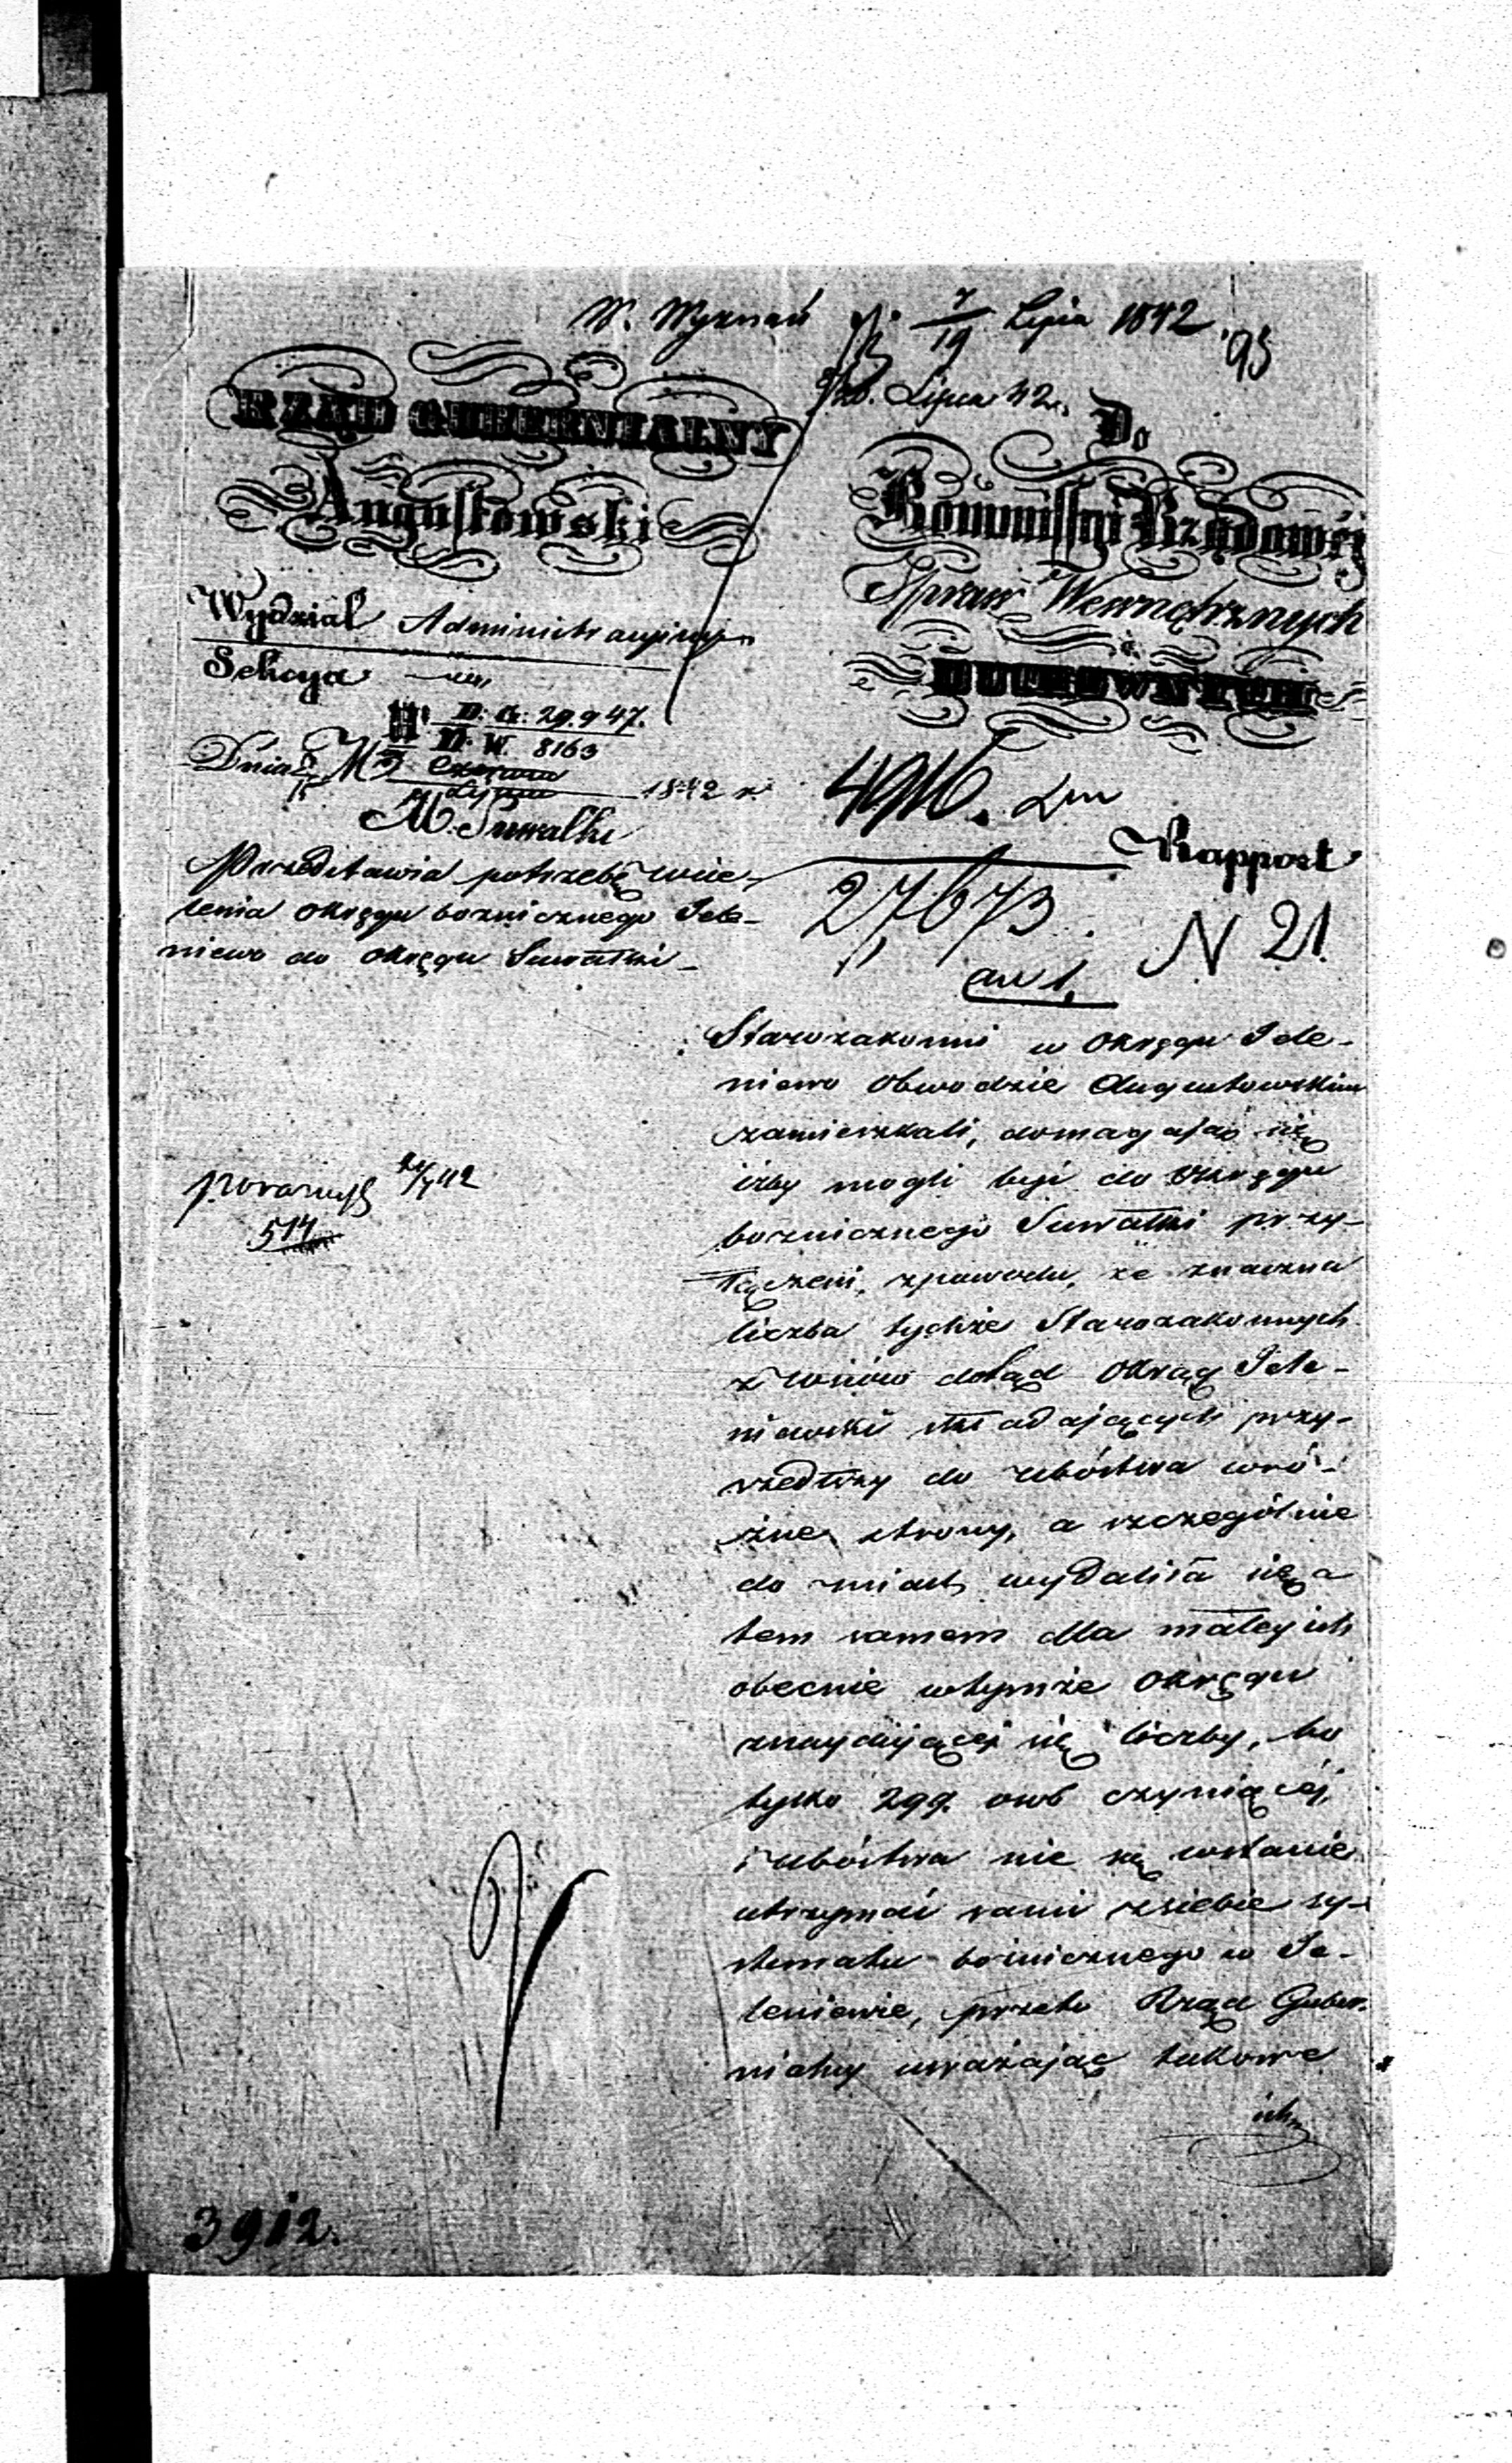 W. Wyznań 7/19 Lipca 1842
95
Lipca 42.
RZĄD GUBERNIALNY
Augustowski
Wydział Administracyiny
Sekcya
N D. G: 29947.
D. W. 8163
Dnia Czerwca
Lipca 1842 r.
M. Suwałki
Przedstawia potrzebę wcie-
lenia okręgu boznicznego Jele-
niewo do okręgu Suwałki
Do
Kommissyi Rządowéy
Spraw Wewnętrznych
i
DUCHOWNYCH
4916.
Rapport
27673.
N 21.
Starozakonni w Okręgu Jele-
niewo Obwodzie Augustowskim
zamieszkali, domagając się
iżby mogli byi do Okręgu
boznicznego Suwałki przy-
łączeni, zpowodu, że znaczna
liczba tychże Starozakonnych
z wsiów dotąd Okrąg Jele-
niewski składających przy-
szedłszy do ubóstwa wró-
żne strony, a szczególnie
do miast, wydaliła się a
tem samem dla małey ich
obecnie wtymże Okręgu
znaydującej się liczby, bo
tylko 299. osób czyniącéj,
i ubóstwa nie są wstanie
utrzymać sami zsiebie sy-
stematu boźnicznego w Je-
leniewie, przeto Rząd Guber-
nialny uważając takowe
ich
514
3912.